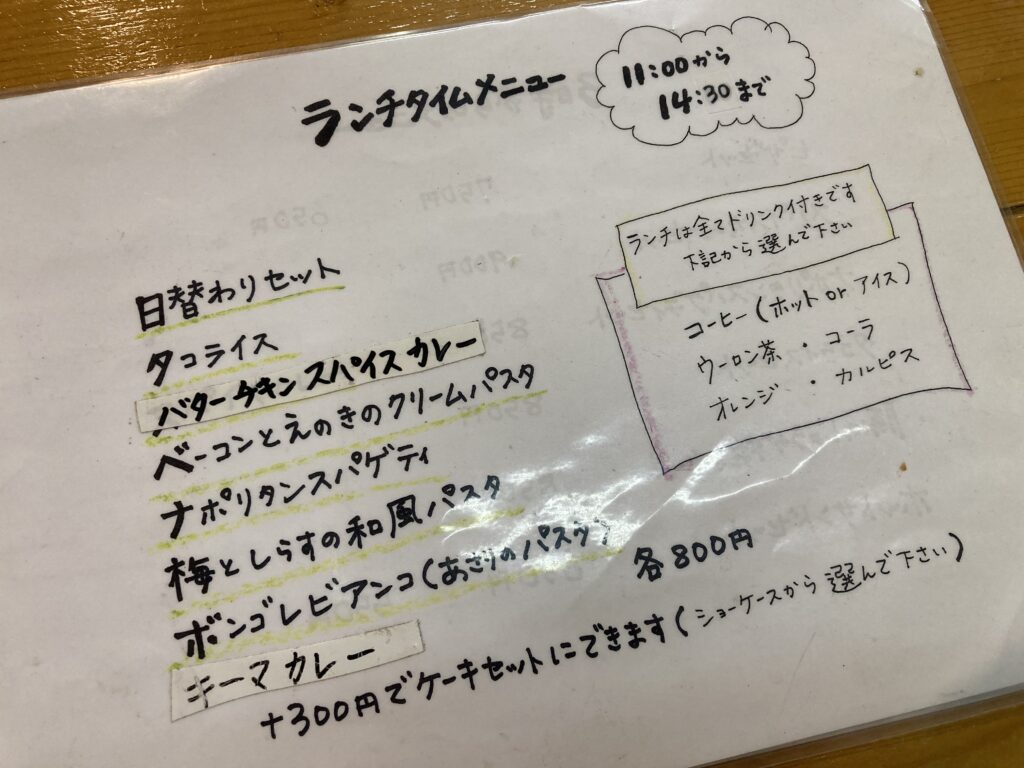 ランチタイムメニュー
11:00から
14:30まで
ランチは全てドリンク付きです
下記から選んで下さい
コーヒー(ホット or アイス)
ウーロン茶・コーラ
オレンジ・カルピス
日替わりセット
タコライス
バターチキンスパイスカレー
ベーコンとえのきのクリームパスタ
ナポリタンスパゲティ
梅としらすの和風パスタ
ボンゴレビアンコ(あさりのパスタ)
キーマカレー
各800円
+300円でケーキセットにできます(ショーケースから選んで下さい)